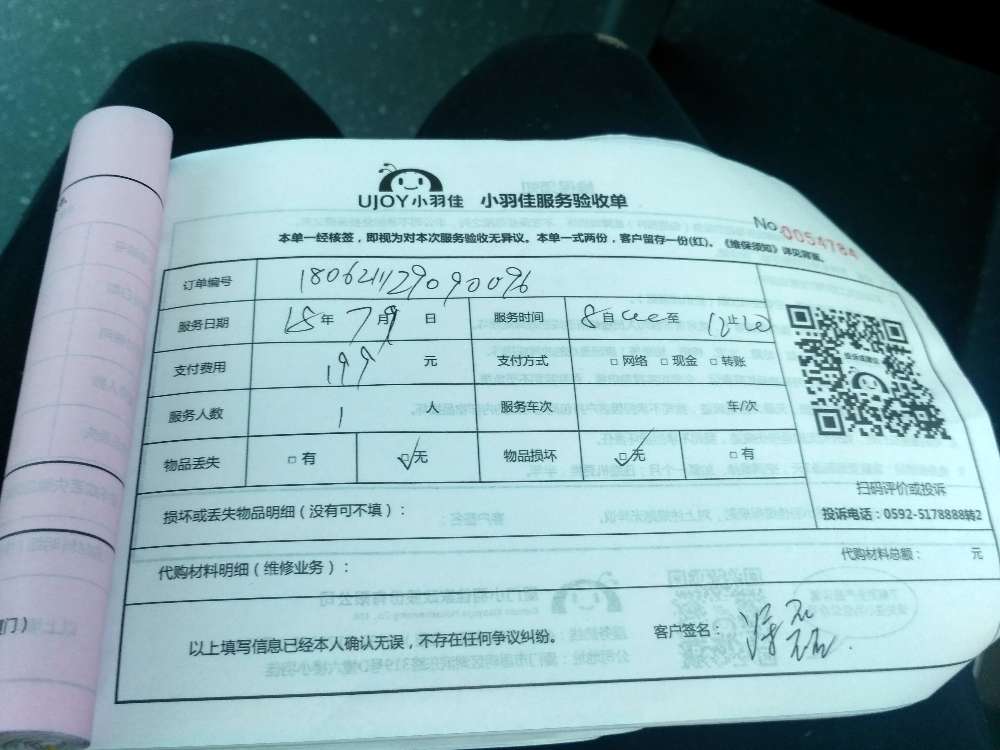 UJOY小羽佳 小羽佳服务验收单
No.0054784
本单一经核签，即视为对本次服务验收无异议。本单一式两份，客户留存一份(红)。《维保须知》详见背面。
订单编号 180621129090096
服务日期 18年 7月9日 服务时间 8 自 至 12 止 20
支付费用 199 元 支付方式 □网络 □现金 □转账
服务人数 1 人 服务车次 车/次
物品丢失 □有 ☑无 物品损坏 ☑无 □有
扫码评价或投诉
投诉电话：0592-5178888转2
损坏或丢失物品明细（没有可不填）：
代购材料明细（维修业务）： 代购材料总额： 元
以上填写信息已经本人确认无误，不存在任何争议纠纷。 客户签名：
门）